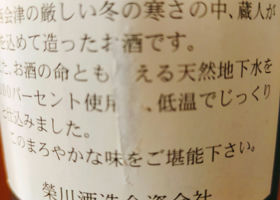 会津の厳しい冬の寒さの中、蔵人が
を込めて造ったお酒です。
た、お酒の命とも える天然地下水を
00パーセント使用 、低温でじっくり
仕込みました。
このまろやかな味をご堪能下さい。
榮川酒造合資会社